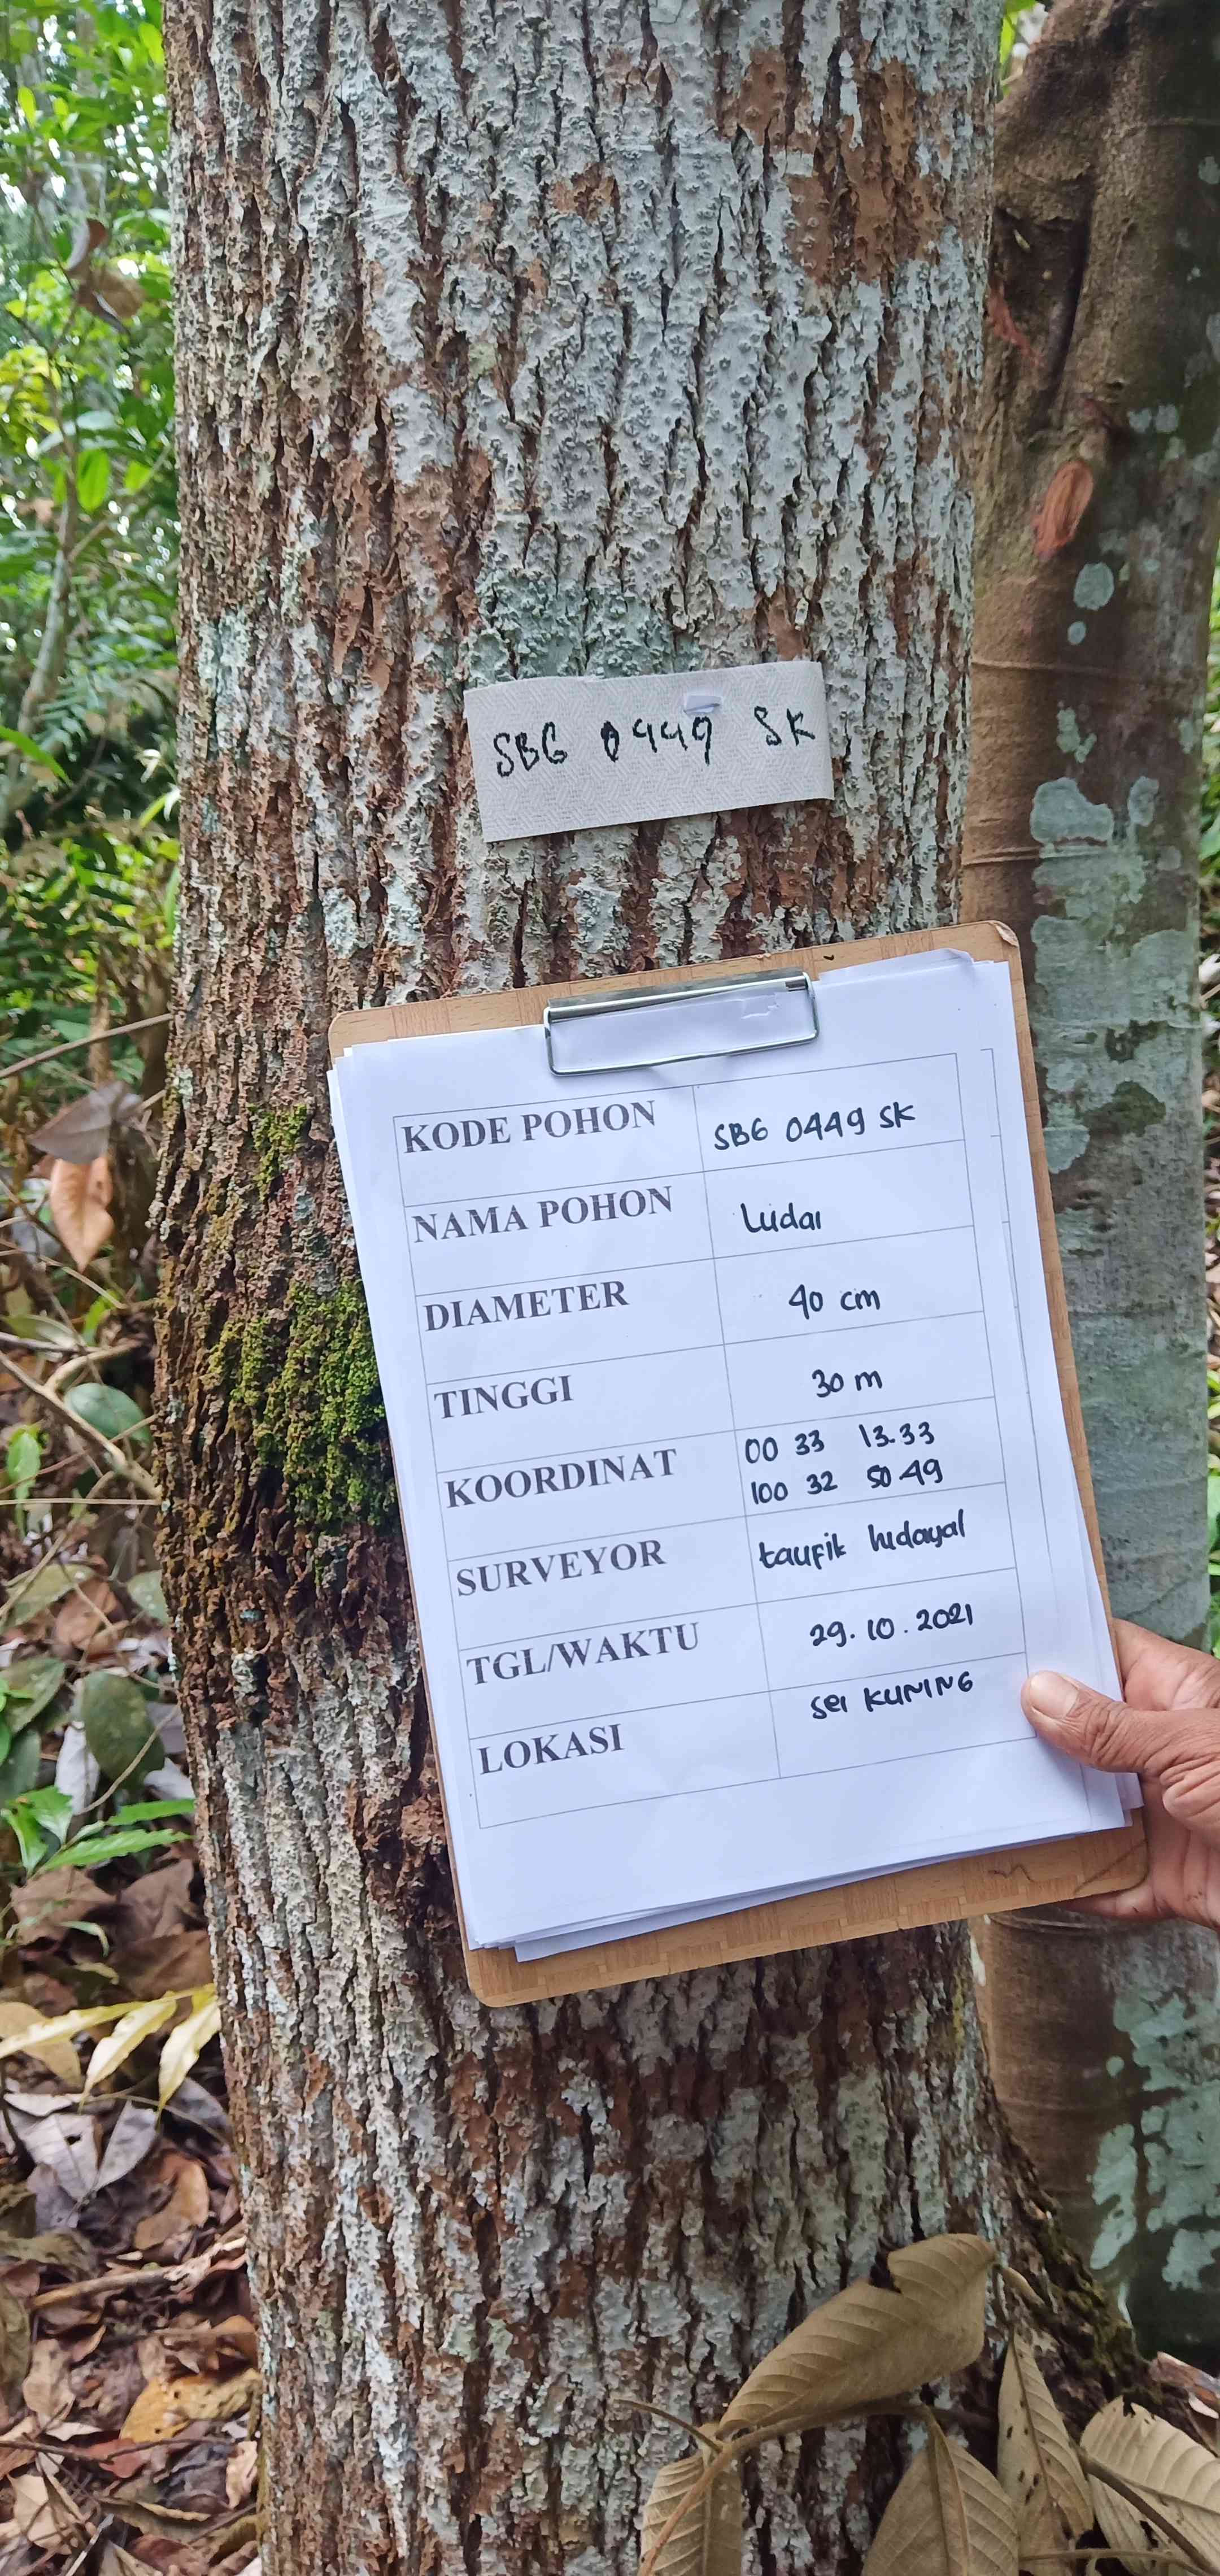 SBG 0449 SK
KODE POHON SBG 0449 SK
NAMA POHON Ludai
DIAMETER 40 cm
TINGGI 30 m
KOORDINAT 00 33 13.33
100 32 50 49
SURVEYOR taufik hidayat
TGL/WAKTU 29.10.2021
LOKASI Sei KUNING